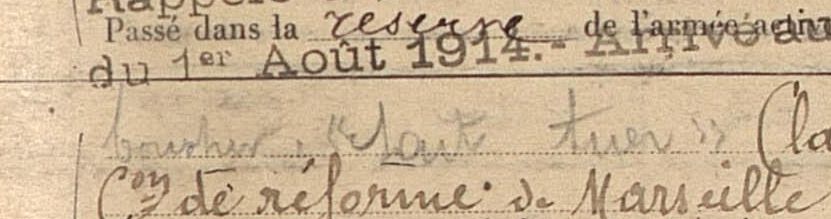 Rappelé
Passé dans la réserve de l'armée active
du 1er Août 1914.- Arrivé au
"Tout tuer" (la
Con de réforme de Marseille